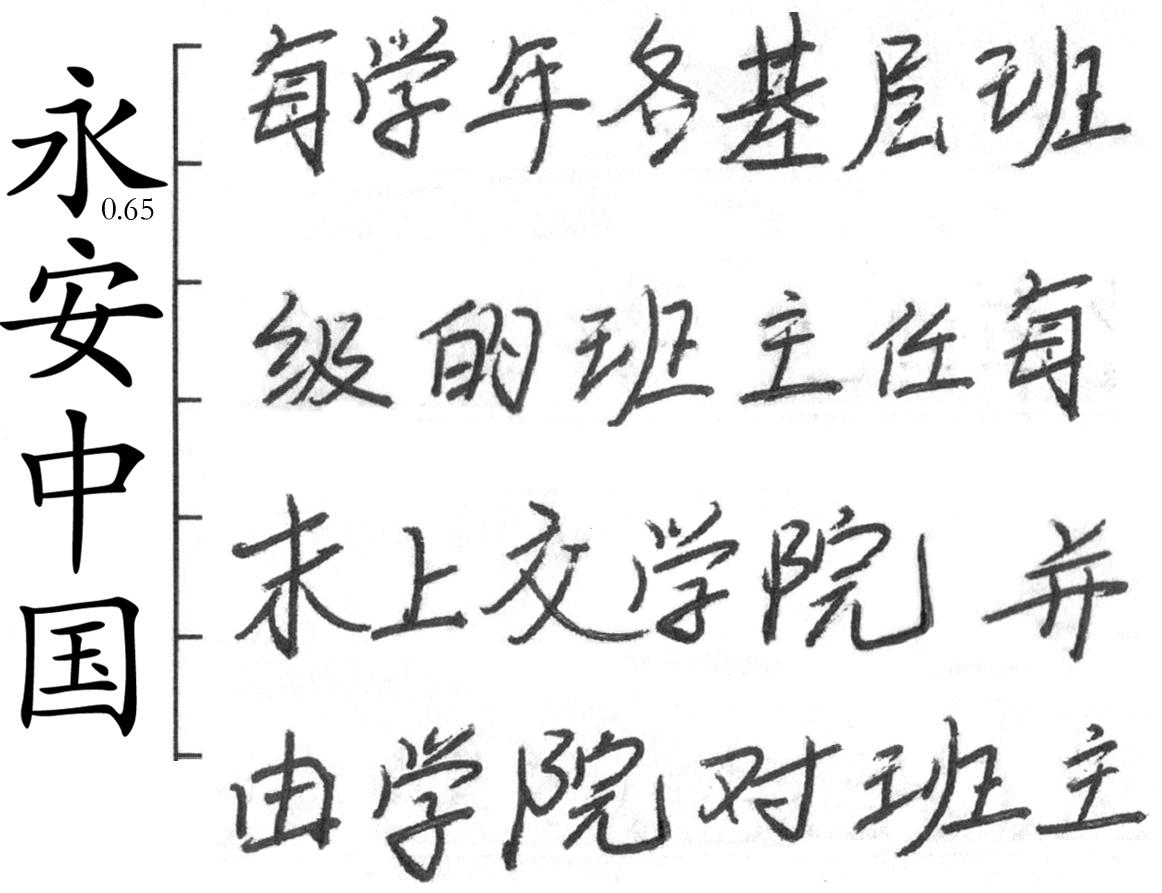 永安中国
0.65
每学年各基层班
级的班主任每
末上交学院 并
由学院对班主